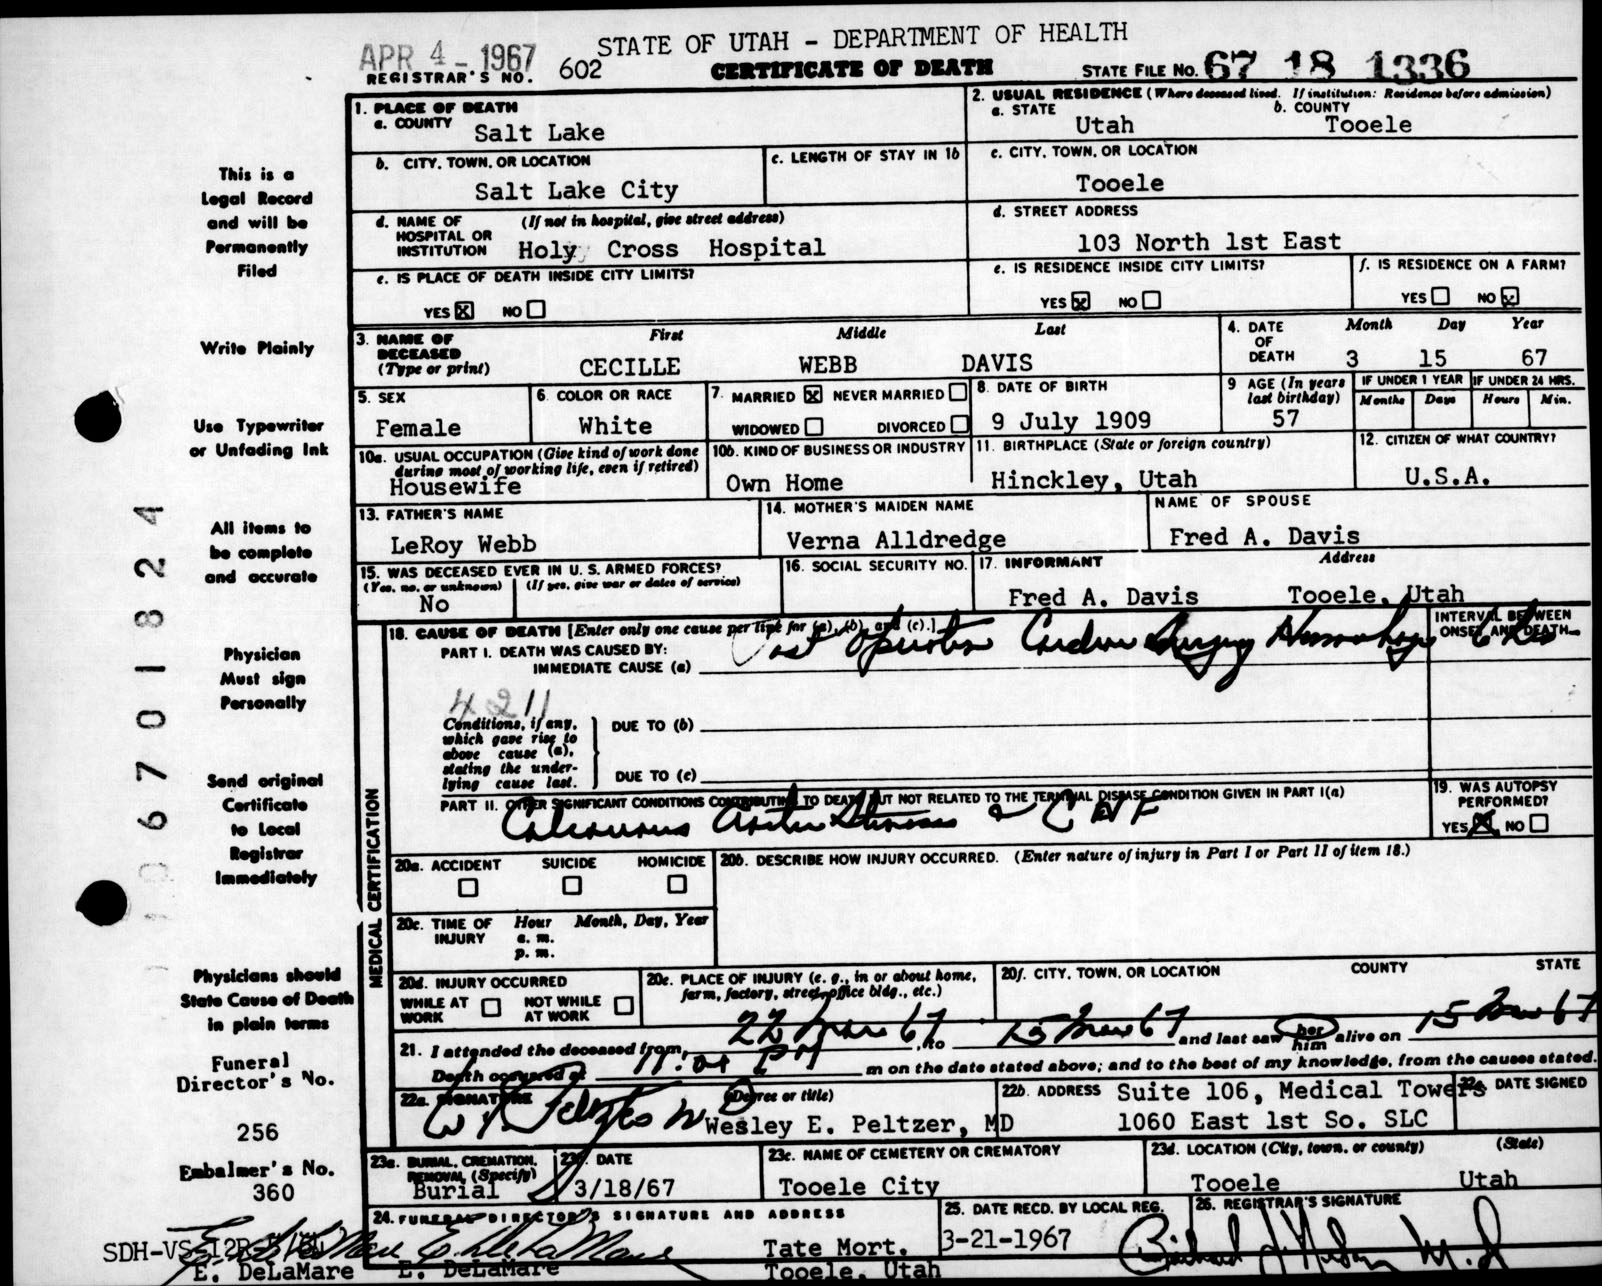 APR 4 - 1967
STATE OF UTAH - DEPARTMENT OF HEALTH
REGISTRAR'S NO. 602 CERTIFICATE OF DEATH STATE FILE NO. 67 18 1336
1. PLACE OF DEATH
a. COUNTY Salt Lake
2. USUAL RESIDENCE (Where deceased lived. If institution: Residence before admission)
a. STATE Utah b. COUNTY Tooele
b. CITY, TOWN, OR LOCATION Salt Lake City
c. LENGTH OF STAY IN 1b
c. CITY, TOWN, OR LOCATION Tooele
d. NAME OF HOSPITAL OR INSTITUTION (If not in hospital, give street address) Holy Cross Hospital
d. STREET ADDRESS 103 North 1st East
e. IS PLACE OF DEATH INSIDE CITY LIMITS?
YES X NO
e. IS RESIDENCE INSIDE CITY LIMITS?
YES X NO
f. IS RESIDENCE ON A FARM?
YES NO X
3. NAME OF DECEASED (Type or print)
First Middle Last
CECILLE WEBB DAVIS
4. DATE OF DEATH
Month Day Year
3 15 67
5. SEX Female
6. COLOR OR RACE White
7. MARRIED X NEVER MARRIED
WIDOWED DIVORCED
8. DATE OF BIRTH 9 July 1909
9 AGE (In years last birthday) 57
IF UNDER 1 YEAR Months Days
IF UNDER 24 HRS. Hours Min.
10a. USUAL OCCUPATION (Give kind of work done during most of working life, even if retired)
Housewife
10b. KIND OF BUSINESS OR INDUSTRY
Own Home
11. BIRTHPLACE (State or foreign country)
Hinckley, Utah
12. CITIZEN OF WHAT COUNTRY?
U.S.A.
13. FATHER'S NAME
LeRoy Webb
14. MOTHER'S MAIDEN NAME
Verna Alldredge
NAME OF SPOUSE
Fred A. Davis
15. WAS DECEASED EVER IN U. S. ARMED FORCES?
(Yes, no, or unknown) (If yes, give war or dates of service)
No
16. SOCIAL SECURITY NO.
17. INFORMANT Address
Fred A. Davis Tooele, Utah
MEDICAL CERTIFICATION
18. CAUSE OF DEATH [Enter only one cause per line for (a), (b), and (c).]
INTERVAL BETWEEN ONSET AND DEATH
PART I. DEATH WAS CAUSED BY:
IMMEDIATE CAUSE (a) Post Operative Cardiac Surgery Hemorrhage
4211
Conditions, if any, which gave rise to above cause (a), stating the underlying cause last.
DUE TO (b)
DUE TO (c)
PART II. OTHER SIGNIFICANT CONDITIONS CONTRIBUTING TO DEATH BUT NOT RELATED TO THE TERMINAL DISEASE CONDITION GIVEN IN PART I(a)
Calcareous Aortic Stenosis & CHF
19. WAS AUTOPSY PERFORMED?
YES X NO
20a. ACCIDENT SUICIDE HOMICIDE
20b. DESCRIBE HOW INJURY OCCURRED. (Enter nature of injury in Part I or Part II of item 18.)
20c. TIME OF INJURY Hour Month, Day, Year
a. m.
p. m.
20d. INJURY OCCURRED
WHILE AT WORK NOT WHILE AT WORK
20e. PLACE OF INJURY (e. g., in or about home, farm, factory, street, office bldg., etc.)
20f. CITY, TOWN, OR LOCATION COUNTY STATE
21. I attended the deceased from 22 67, to 15 Mar 67 and last saw her him alive on 15 Mar 67
Death occurred at PM m on the date stated above; and to the best of my knowledge, from the causes stated.
22a. SIGNATURE (Degree or title)
Wesley E. Peltzer, MD
22b. ADDRESS Suite 106, Medical Towers
1060 East 1st So. SLC
22c. DATE SIGNED
23a. BURIAL, CREMATION, REMOVAL (Specify)
Burial
23b. DATE
3/18/67
23c. NAME OF CEMETERY OR CREMATORY
Tooele City
23d. LOCATION (City, town, or county) (State)
Tooele Utah
24. FUNERAL DIRECTOR'S SIGNATURE AND ADDRESS
E. DeLaMare
Tate Mort.
Tooele, Utah
25. DATE RECD. BY LOCAL REG.
3-21-1967
26. REGISTRAR'S SIGNATURE
This is a
Legal Record
and will be
Permanently
Filed
Write Plainly
Use Typewriter
or Unfading Ink
All items to
be complete
and accurate
Physician
Must sign
Personally
Send original
Certificate
to Local
Registrar
Immediately
Physicians should
State Cause of Death
in plain terms
Funeral
Director's No.
256
Embalmer's No.
360
E. DeLaMare